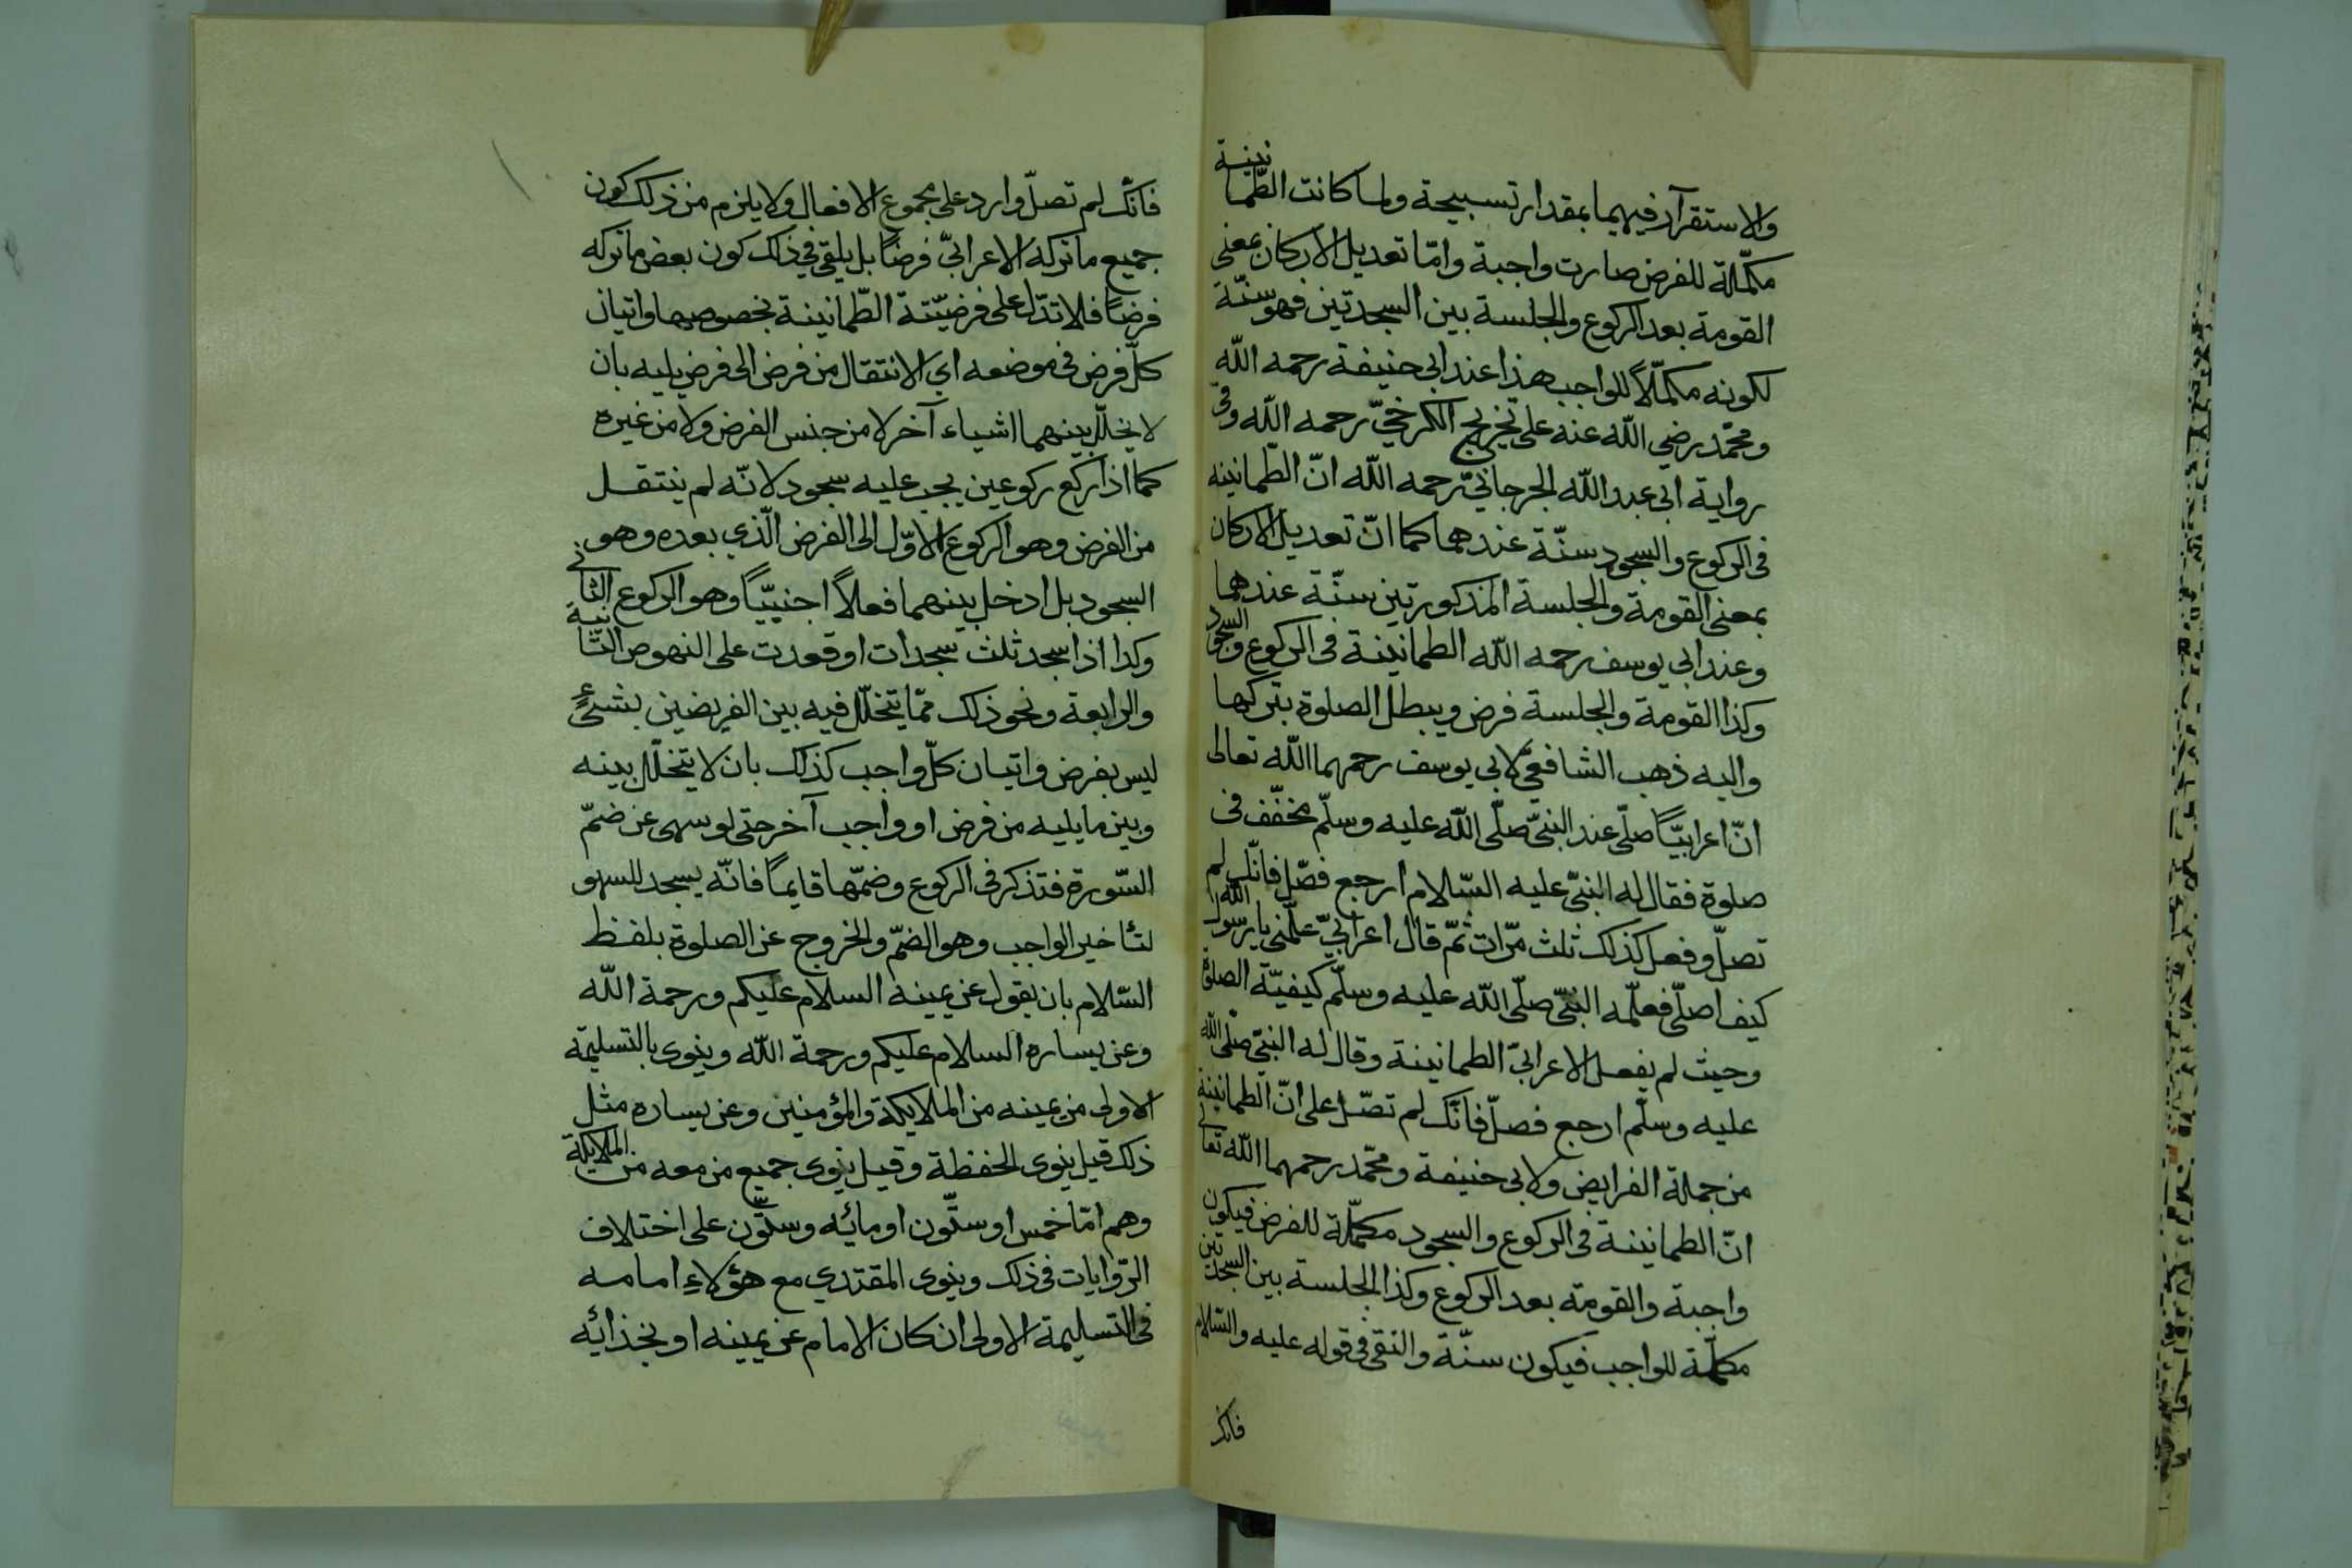 والاستقرآر فيهما بمقدار تسبيحة ولما كانت الطّمانينة
مكمّلة للفرض صارت واجبة وامّا تعديل الاركان بمعنى
القومة بعد الركوع والجلسة بين السجدتين فهو سنّة
لكونه مكمّلاً للواجب هذا عند ابى حنيفة رحمه اللّه
ومحمّد رضي اللّه عنه على تخريج الكرخيّ رحمه اللّه وفى
رواية ابى عبد اللّه الجرجانيّ رحمه اللّه انّ الطّمانينه
فى الركوع والسجود سنّة عندهما كما انّ تعديل الاركان
بمعنى القومة والجلسة المذكورتين سنّة عندهما
وعند ابي يوسف رحمه اللّه الطمانينة فى الركوع والسجود
وكذا القومة والجلسة فرض ويبطل الصلوة بتركها
واليه ذهب الشافعيّ لابي يوسف رحمهما اللّه تعالى
انّ اعرابيّاً صلّى عند النبيّ صلّى اللّه عليه وسلّم مخفّف فى
صلوة فقال له النبيّ عليه السّلام ارجع فصّل فانّك لم
تصلّ وفعل كذلك ثلث مرّات ثمّ قال اعرابيّ علّمنى يا رسول اللّه
كيف اصلّى فعلّمه النبيّ صلّى اللّه عليه وسلّم كيفيّة الصلوة
وحيث لم يفعل الاعرابيّ الطمانينة وقال له النبيّ صلّى اللّه
عليه وسلّم ارجع فصلّ فانّك لم تصّل على انّ الطمانينة
من جملة الفرايض ولابى حنيفة ومحمّد رحمهما اللّه تعالى
انّ الطمانينة فى الركوع والسجود مكمّلة للفرض فيكون
واجبة والقومة بعد الركوع وكذا الجلسة بين السجدتين
مكمّلة للواجب فيكون سنّة والنفى فى قوله عليه والسّلام
فانّك
فانّك لم تصلّ وارد على مجموع الافعال ولا يلزم من ذلك كون
جميع ما تركه الاعرابيّ فرضاً بل يلقى في ذلك كون بعض ما تركه
فرضاً فلا تدّل على فرضيّتة الطّمانينة بخصوصها واتيان
كلّ فرض فى موضعه اي الانتقال من فرض الى فرض يليه بان
لا يخلّل بينهما اشياء آخر لا من جنس الفرض ولا من غيره
كما اذا ركع ركوعين يجب عليه سجود لانّه لم ينتقل
من الفرض وهو الركوع الاوّل الى الفرض الّذي بعده وهو
السجود بل ادخل بينهما فعلاً اجنبيّاً وهو الركوع الثانى
وكذا اذا سجد ثلث سجدات او قعدت على النهوض الثّانية
والرابعة ونحو ذلك ممّا يتخلّل فيه بين الفريضين بشئٍ
ليس بفرض واتيان كلّ واجب كذلك بان لا يتخلّل بينه
وبين ما يليه من فرض او واجب آخر حتى لو سهى عن ضمّ
السّورة فتذكر فى الركوع وضمّها قايماً فانّه يسجد للسهو
لتاخير الواجب وهو الضمّ والخروج عن الصلوة بلفظ
السّلام بان يقول عن يمينه السلام عليكم ورحمة اللّه
وعن يساره السلام عليكم ورحمة اللّه وينوى بالتسليمة
الاولى من يمينه من الملايكة والمؤمنين وعن يساره مثل
ذلك قيل ينوى الحفظة وقيل ينوى جميع من معه من الملايكة
وهم امّا خمس او ستّون او مائه وستّون على اختلاف
الرّوايات فى ذلك وينوى المقتدي مع هؤلاءِ امامه
فى التسليمة الاولى ان كان الامام عن يمينه او بخذائه